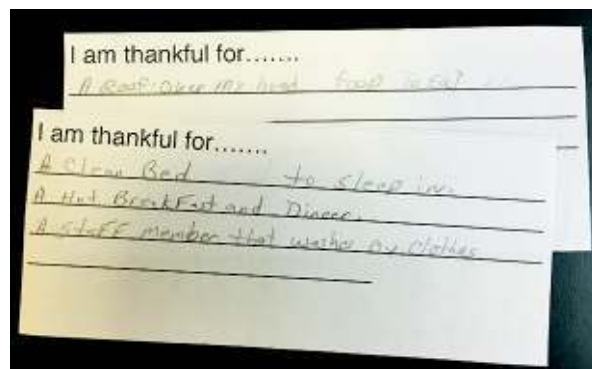 I am thankful for.......
A Roof over my head food to eat
I am thankful for.......
A Clean Bed to sleep in.
A Hot BreakFast and Dinner.
A StaFF member that washes my Clothes